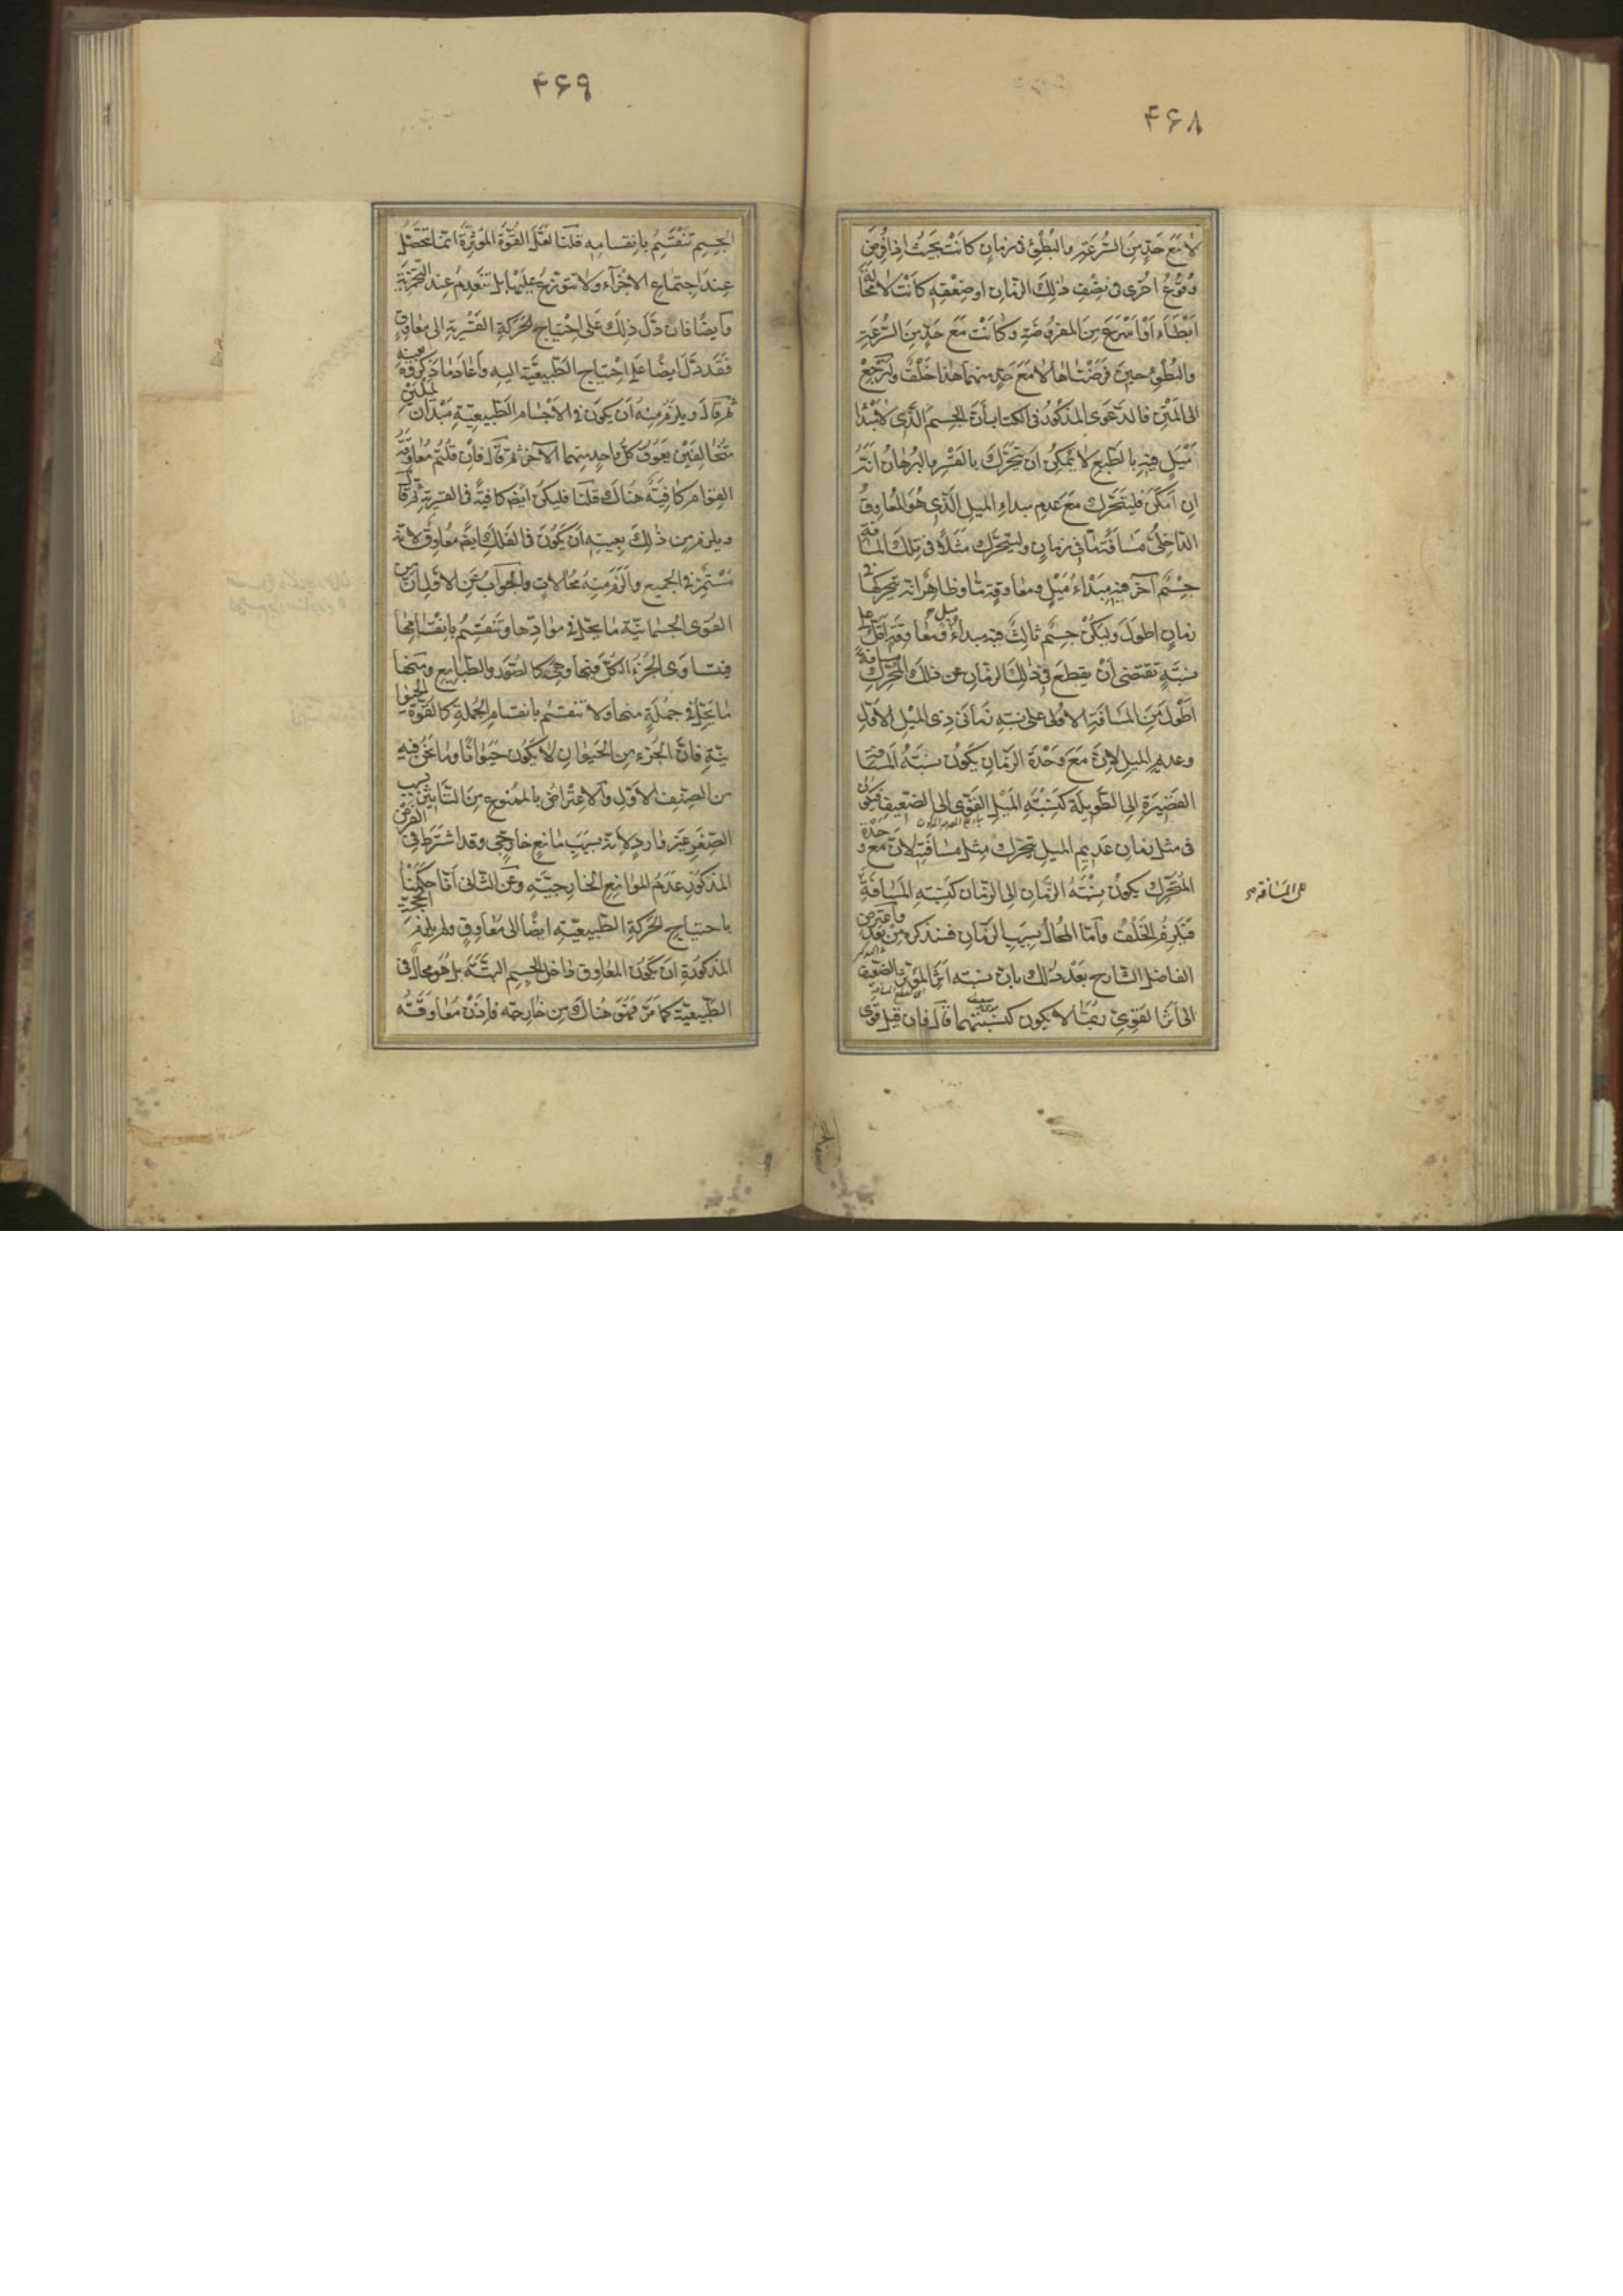 ۴۶۸
لا مع حد من السرعة والبطؤ فى زمان كانت بحيث اذا فرض
وقوع اخرى فى نصف ذلك الزمان او ضعفه كانت لا محالة
ابطاء او اسرع من المفروضة وكانت مع حد من السرعة
والبطؤ حين فرضناها لا مع حد منهما هذا خلف ولنرجع
الى المتن فالدعوى المذكور فى الكتاب أن الجسم الذى لا مبدأ
ميل فيه بالطبع لا يمكن ان يتحرك بالقسر والبرهان انه
ان امكن فليتحرك مع عدم مبداء الميل الذى هو المعاوق
الداخلى مسافة ما فى زمان وليتحرك مثلا فى تلك المسافة
جسم آخر فيه مبداء ميل ومعاوقة ما وظاهر انه يتحركها فى
زمان اطول وليكن جسم ثالث فيه مبداء ميل ومعاوقة اقل على
نسبة تقتضى أن يقطع فى ذلك الزمان عن ذلك المحرك مسافة
اطول من المسافة الاولى على نسبة زمانى ذى الميل الاول
وعديم الميل لان مع وحدة الزمان يكون نسبة المسافة
القصيرة الى الطويلة كنسبة الميل القوى الى الضعيف فيكون
فى مثل زمان عديم الميل يتحرك مثل مسافته لان مع وحدة
المتحرك يكون نسبة الزمان الى الزمان كنسبة المسافة
على المسافة
فيلزم الخلف وأما المحال بسبب الزمان فسنذكره من بعد واعترض
الفاضل الشارح بعد ذلك بان نسبة اثر المؤثر الضعيف
الى اثر القوى ربما لا يكون كنسبتهما قال فان قيل قوى
۴۶۹
الجسم تنقسم بانقسامه قلنا لعل القوة المؤثرة انما تحصل
عند اجتماع الاجزاء ولا تتوزع عليها بل تنعدم عند التجزئة
وأيضا فان دل ذلك على احتياج الحركة القسرية الى معاوق
فقد دل ايضا على احتياج الطبيعية اليه وأعاد ما ذكره فيه بعينه
ثم قال ويلزم منه أن يكون فى الاجسام الطبيعية مبدآن لميلين
متخالفين يعوق كل واحد منهما الآخر ثم قال فان قلتم معاوقة
القوام كافية هناك قلنا فليكن ايضا كافية فى القسرية ثم قال
ويلزم من ذلك بعينه أن يكون فى الفلك ايضا معاوق لانه
مستمر فى الجميع والزم منه محالات والجواب عن الاول ان من
القوى الجسمانية ما يحل فى موادها وتنقسم بانقسامها
فيتساوى الجزء الكل فيها وهى كالصور والطبايع ومنها
ما يحل فى جملة منها ولا تنقسم بانقسام الجملة كالقوة الحيوا
نية فان الجزء من الحيوان لا يكون حيوانا وما نحن فيه
من الصنف الاول والاعتراض بالممنوع من التاثير بسبب
الصغر غير وارد لانه بسبب مانع خارجى وقد اشترط فى الفرض
المذكور عدم الموانع الخارجية وعن الثانى أنا حكمنا
باحتياج الحركة الطبيعية ايضا الى معاوق ولم يلزم من الحجة
المذكورة ان يكون المعاوق داخل الجسم البتة بل هو محال فى
الطبيعية كما مر فهو هناك من خارجه فاذن معاوقة